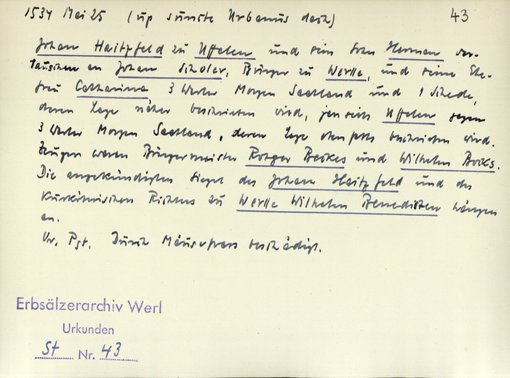 1534 Mai 25 (up sunste Urbanus dach)
43
Johan Haitzfeld zu Uffelen und sein Sohn Herman ver-
tauschen an Johan Scholer, Bürger zu Werlle, und seine Ehe-
frau Catharina 3 Werler Morgen Saatland und 1 Schede,
deren Lage näher beschrieben wird, jenseits Uffelen gegen
3 Werler Morgen Saatland, deren Lage ebenfalls beschrieben wird.
Zeugen waren Bürgermeister Rotger Berkes und Wilhelm Brixs.
Die angekündigten Siegel des Johan Haitzfeld und des
kurkölnischen Richters zu Werlle Wilhelm Benedicten hängen
an.
Ur. Pgt. Durch Mäusefrass beschädigt.
Erbsälzerarchiv Werl
Urkunden
St Nr. 43